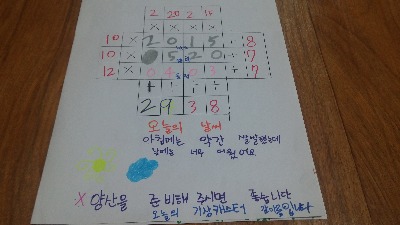 2 20 2 15
× × × ×
10 × 2 0 1 5 8
10 × 0 5 2 0 ÷ 7
12 × 0 4 0 3 ÷ 7
2 9 3 8
오늘의 날씨
아침에는 약간 쌀쌀했는데
낮에는 너무 더웠어요
× 양산을 준비해 주시면 좋습니다
오늘의 기상캐스터